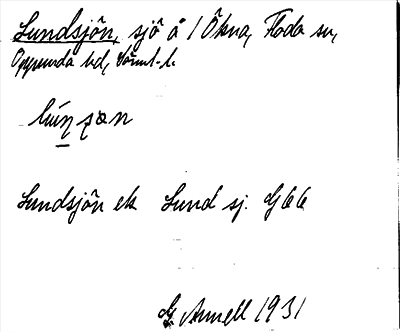 Lundsjön, sjö å 1 Ökna, Floda sn,
Oppunda hd, Söml. l.
lúnʂɔn
Lundsjön ek Lund sj. G66
G. Annell 1931